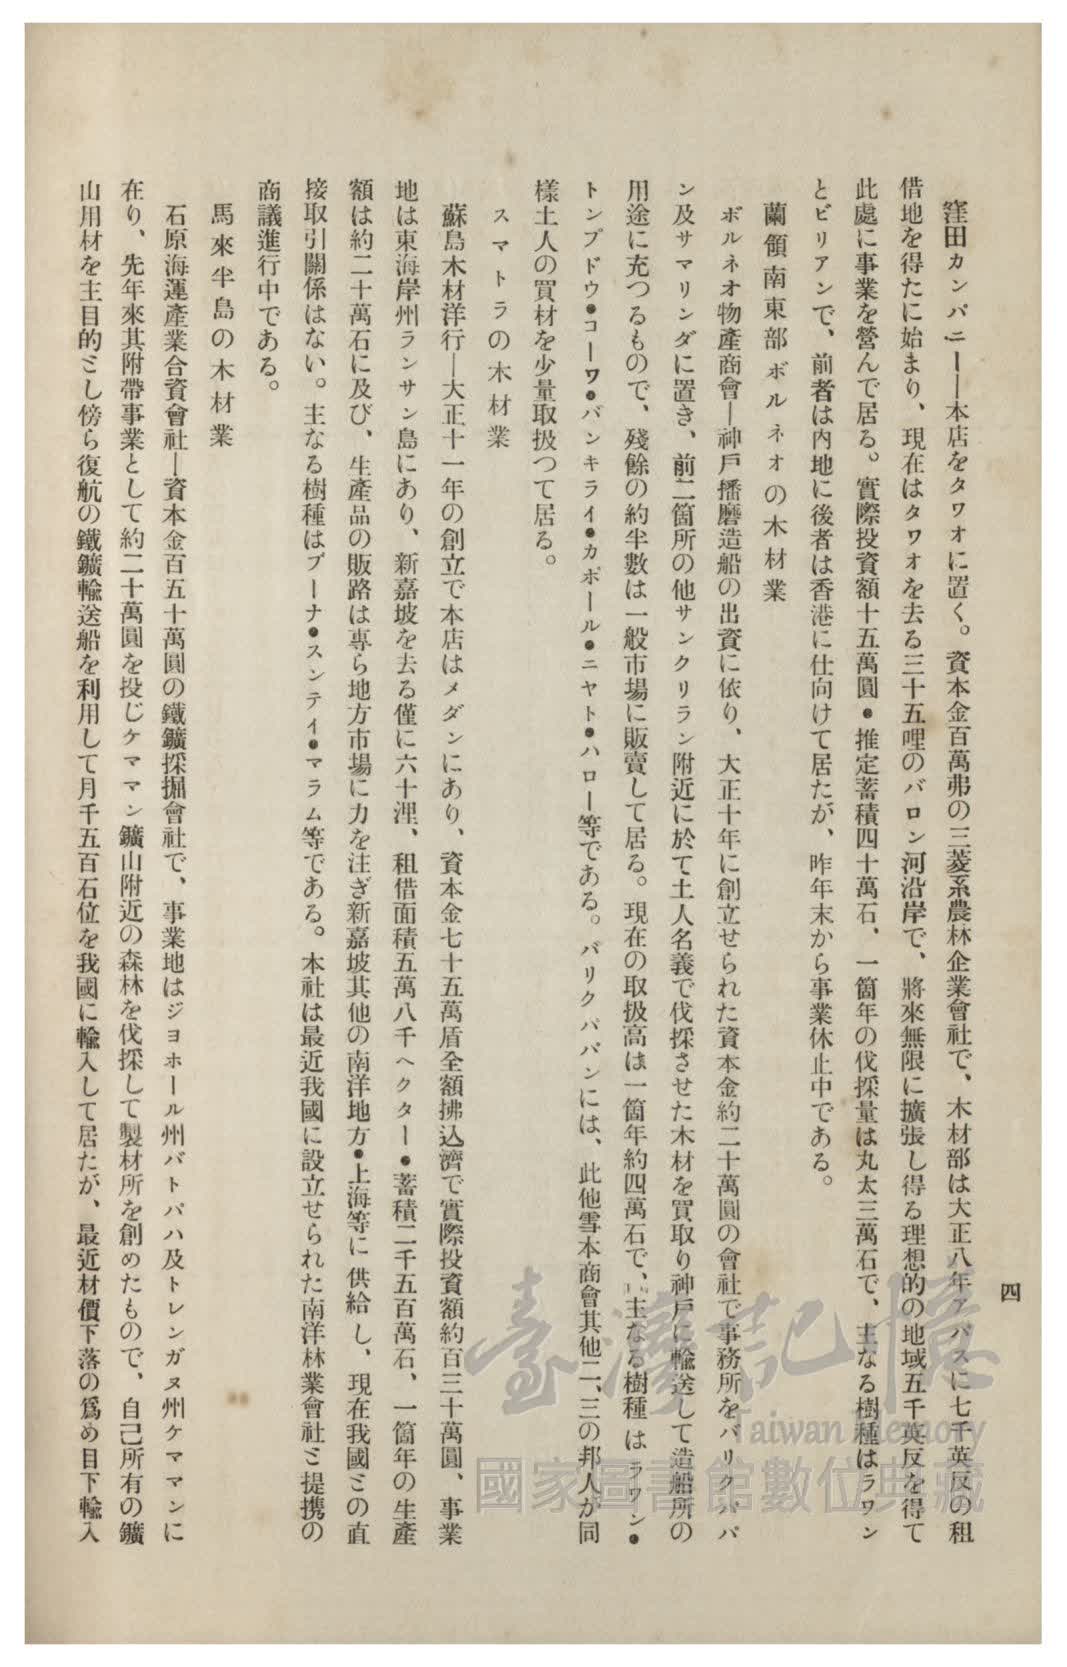 四
窪田カンパニー―本店をタワオに置く。資本金百萬弗の三菱系農林企業會社で、木材部は大正八年アパスに七千英反の租
借地を得たに始まり、現在はタワオを去る三十五哩のバロン河沿岸で、將來無限に擴張し得る理想的の地域五千英反を得て
此處に事業を營んで居る。實際投資額十五萬圓●推定蓄積四十萬石、一箇年の伐採量は丸太三萬石で、主なる樹種はラワン
とビリアンで、前者は內地に後者は香港に仕向けて居たが、昨年末から事業休止中である。
蘭領南東部ボルネオの木材業
ボルネオ物產商會―神戶播磨造船の出資に依り、大正十年に創立せられた資本金約二十萬圓の會社で事務所をバリクパパ
ン及サマリンダに置き、前二箇所の他サンクリラン附近に於て土人名義で伐採させた木材を買取り神戶に輸送して造船所の
用途に充つるもので、殘餘の約半數は一般市場に販賣して居る。現在の取扱高は一箇年約四萬石で、主なる樹種はラワン●
トンプドウ●コーワ●バンキライ●カポール●ニヤト●ハロー等である。バリクパパンには、此他雪本商會其他二、三の邦人が同
樣土人の買材を少量取扱つて居る。
スマトラの木材業
蘇島木材洋行―大正十一年の創立で本店はメダンにあり、資本金七十五萬盾全額拂込濟で實際投資額約百三十萬圓、事業
地は東海岸州ランサン島にあり、新嘉坡を去る僅に六十浬、租借面積五萬八千ヘクター●蓄積二千五百萬石、一箇年の生產
額は約二十萬石に及び、生產品の販路は專ら地方市場に力を注ぎ新嘉坡其他の南洋地方●上海等に供給し、現在我國との直
接取引關係はない。主なる樹種はプーナ●スンテイ●マラム等である。本社は最近我國に設立せられた南洋林業會社と提携の
商議進行中である。
馬來半島の木材業
石原海運產業合資會社―資本金百五十萬圓の鐵鑛採掘會社で、事業地はジヨホール州バトパハ及トレンガヌ州ケママンに
在り、先年來其附帶事業として約二十萬圓を投じケママン鑛山附近の森林を伐採して製材所を創めたもので、自己所有の鑛
山用材を主目的とし傍ら復航の鐵鑛輸送船を利用して月千五百石位を我國に輸入して居たが、最近材價下落の爲め目下輸入
臺灣記憶
Taiwan Memory
國家圖書館數位典藏